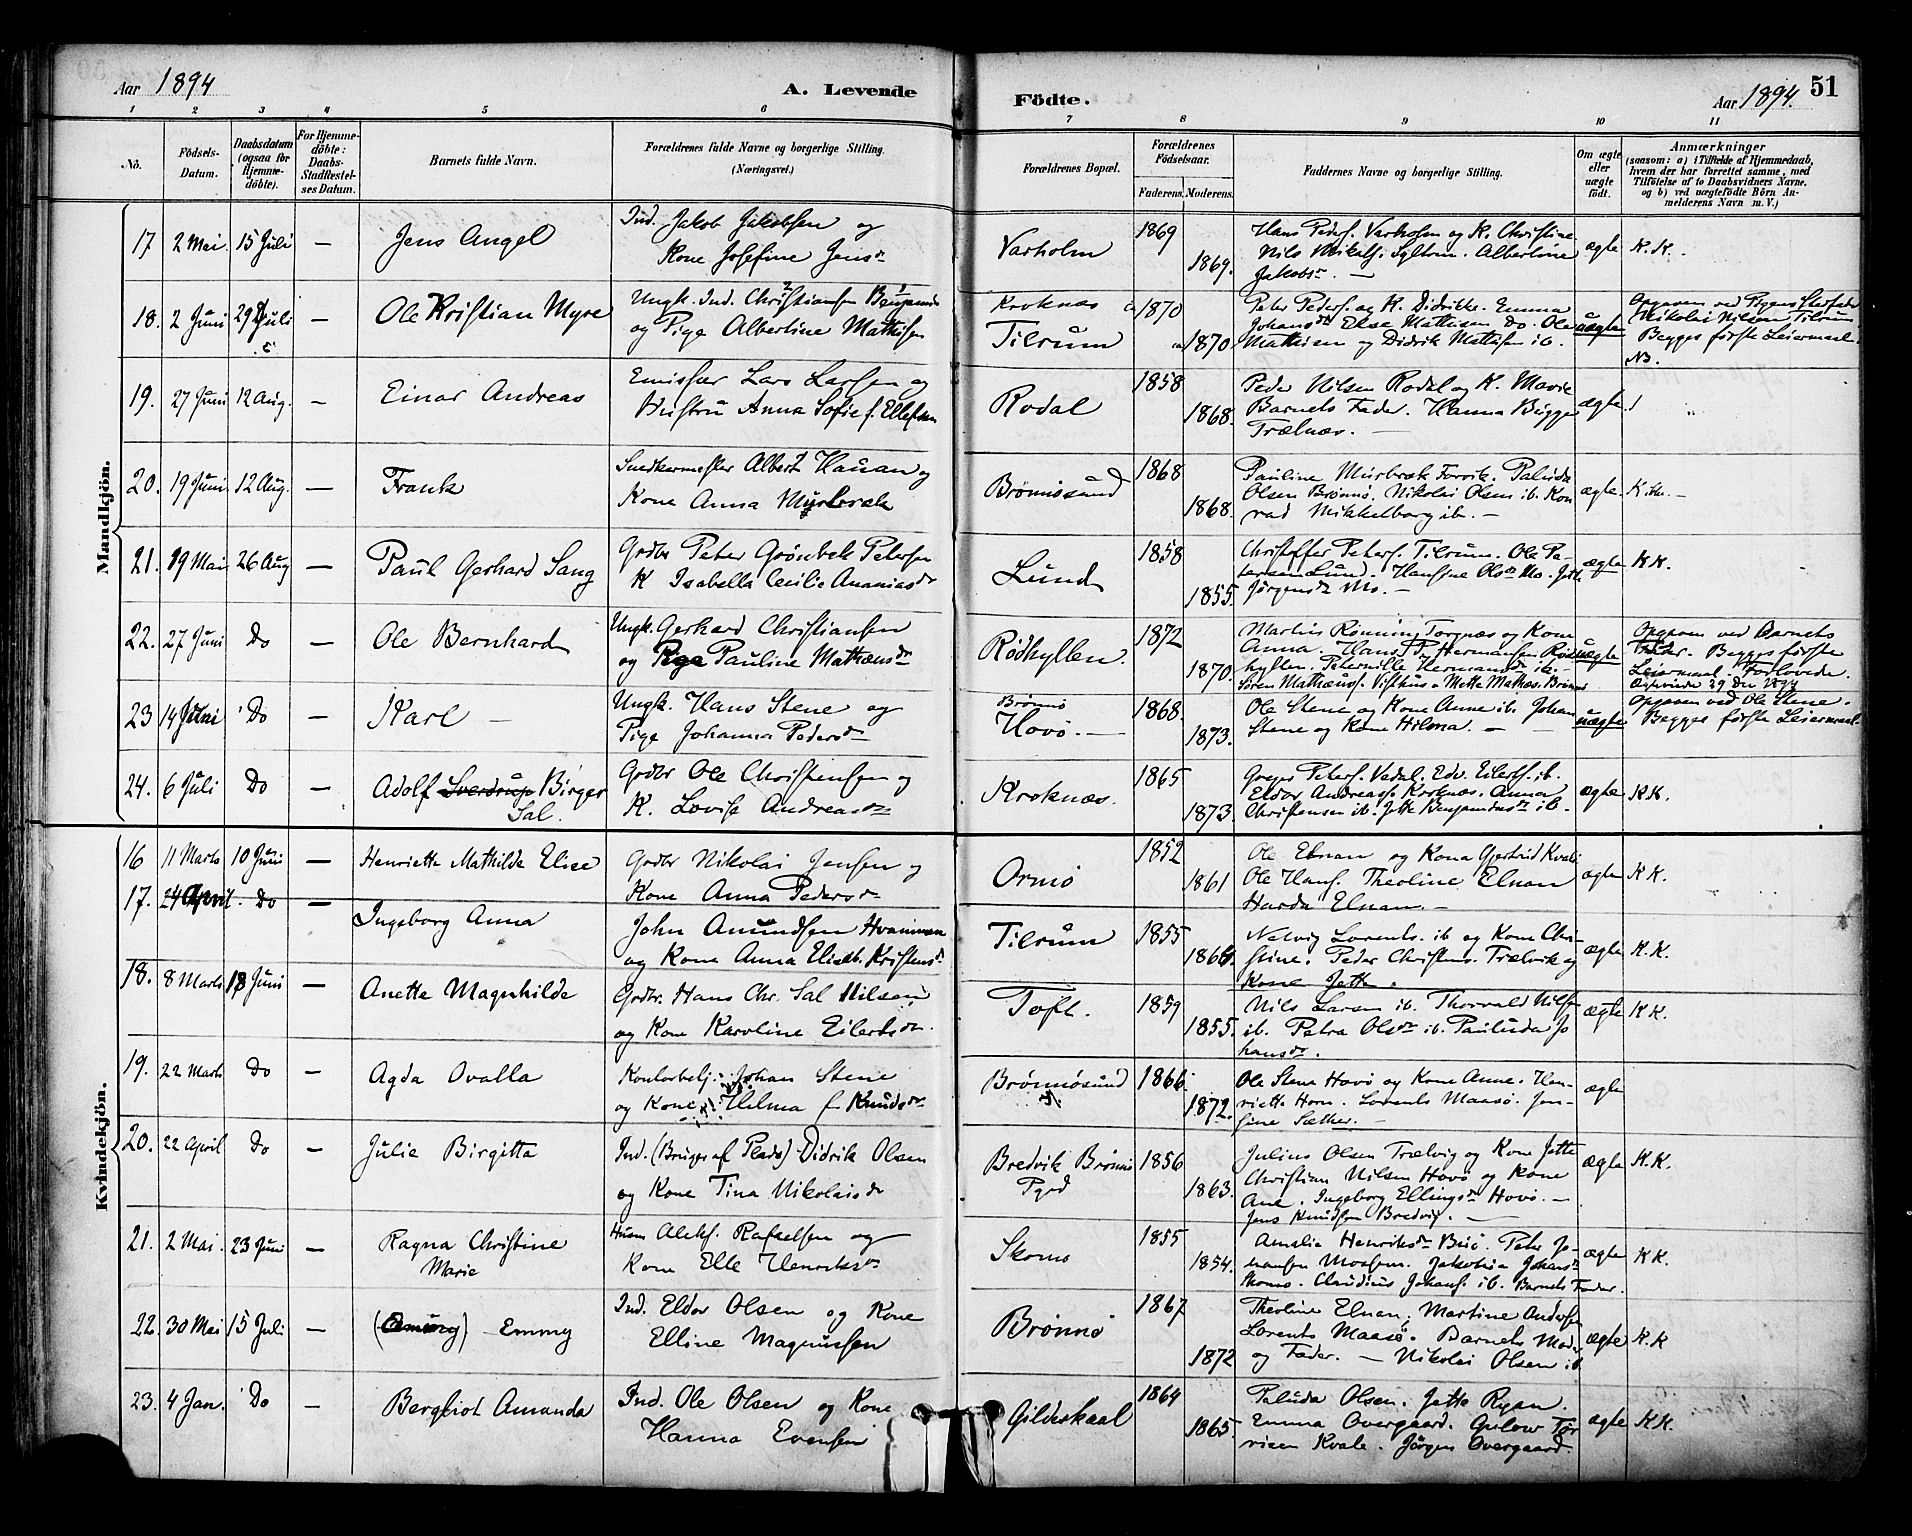 Aar 1894
A. Levende
Födte.
Aar 1894.
51
1 2 3 4 5 6 7 8 9 10 11
No.
Födsels-Datum.
Daabsdatum (ogsaa for Hjemme-döbte).
For Hjemme-döbte: Daabs-Stadfæstel-ses Datum.
Barnets fulde Navn.
Forældrenes fulde Navne og borgerlige Stilling. (Næringsvei.)
Forældrenes Bopæl.
Forældrenes Födselsaar.
Faderens. Moderens.
Faddernes Navne og borgerlige Stilling.
Om ægte eller uægte födt.
Anmærkninger
(saasom: a) i Tilfælde af Hjemmedaab, hvem der har forrettet samme, med Tilföielse af to Daabsvidners Navne, og b) ved uægtefödte Börn An-melderens Navn m. V.)
Mandkjön.
17 2 Mai. 15 Juli — Jens Angel
Ind. Jakob Jakobsen og
Kone Josefine Jensdr
Varholm 1869 1869.
Hans Peders. Varholm og K. Christine
Nils Mikals. Sylten. Albertine
Jakobsdr. —
ægte K. K.
18. 2 Juni 29 Juli — Ole Kristian Myre
Ungk. Ind. Christiansen Benjamins
og Pige Albertine Mathisen
Kroknæs
Tilrum 1870 1870
Peter Peders. og K. Didrikke. Emma
Johansdr Else Mathisen Do. Ole
Mathisen og Didrik Mathisen ib.
uægte
Opgaven ved Pigens Stedfader
Nikolai Nilsen Tilrum
Begges første Leiermaal.
NB.
19. 27 Juni 12 Aug. — Einar Andreas
Emissær Lars Larsen og
Hustru Anna Sofie f. Ellefsen
Rodal 1858 1868.
Peder Nilsen Rodal og K. Marie
Barnets Fader. Hanna Bugge
Trælnæs. —
ægte
20. 19 Juni 12 Aug. — Frank
Snedkermester Albert Hauan og
Kone Anna Murbræk
Brønnøsund 1868 1868.
Pauline Murbræk Forvik. Paluda
Olsen Brønnø. Nikolai Olsen ib. Kon
rad Mikkelborg ib. —
ægte.
21. 19 Mai 26 Aug — Paul Gerhard Sang
Grdbr Peter Grønbek Petersen
K Isabella Cecilie Ananiasdr
Lund 1858 1855.
Christoffer Peters. Tilrum. Ole Pe-
tersen Lund. Hansine Olsdr Mo.
Jørgensdr Mo. —
ægte K K.
22. 27 Juni Do — Ole Bernhard
Ungk. Gerhard Christiansen
og Pige Pauline Mathæusdr
Rødhyllen. 1872 1870.
Martin Rønning Torgnæs og Kone
Anna. Hans P. Hermansen Rød
hyllen. Peternille Hermansdr ib. —
Sören Mathæuss. Vishus Mette Mathæs. Brønnø
uægte
Opgaven ved Barnets
Fader. Begges første
Leiermaal. Forlovede.
23 14 Juni Do — Karl —
Ungk. Hans Stene og
Pige Johanna Pedersdr
Brønnø
Hovø. — 1868. 1873.
Ole Stene og Kone Anne ib. Johan
Stene og Kone Hilma. —
uægte
Opgaven ved Ole Stene.
Begges første Leiermaal.
24. 6 Juli Do — Adolf Sverdrup Birger
Sal.
Grdbr Ole Christensen og
K. Lovise Andreasdr
Kroknæs. 1865 1873.
Peters. Vedal. Edv. Eilerts. ib.
Eldor Andreass. Kroknæs. Anna
Christensen ib. Jette Benjaminsdr ib.
ægte K K.
Kvindekjön.
16 11 Marts 10 Juni — Henriette Mathilde Elise
Grdbr Nikolai Jensen og
Kone Anna Pedersdr
Ormø 1852 1861
Ole Elnan og Kona Gjertrud Kvale
Ole Hans. Theoline Elnan
Harda Elnan. —
ægte K K.
17. 24 April. Do — Ingeborg Anna
John Amundsen Hvamman
og Kone Anna Elisab. Kristensdr
Tilrum 1855 1864.
Nelvig Lorents. ib og Kone Chri-
stine. Peder Christens. Trælvik og
Kone Jette.
ægte K.K.
18. 8 Marts 18 Juni — Anette Magnhilde
Grdbr. Hans Chr. Sal Nilsen
og Kone Karoline Eilertsdr.
Toft. 1859 1855.
Nils Larsen ib. Thorvald Nils.
ib. Petra Olsdr ib. Pauluda Jo
hansdr.
ægte K K.
19. 22 Marts Do — Agda Ovalla
Kontorbetj. Johan Stene
og Kone Hilma f. Knudsdr
Brønnøsund 1866. 1872.
Ole Stene Hovø og Kone Anne. Hen-
riette Horn. Lorents Maasø. Jen-
sine Sæther. —
ægte
20. 22 April Do — Julie Birgitta
Ind. (Bruger af Plads) Didrik Olsen
og Kone Tina Nikolaisdr
Bredvik Brønnø
Pgjd 1856 1863.
Julius Olsen Trælvig og Kone Jette
Christian Nilsen Hovø og Kone
Ane. Ingeborg Ellingsdr Hovø. —
Jens Knudsen Bredvig. —
ægte K.K.
21. 2 Mai. 23 Juni — Ragna Christine
Marie
Husm Aleks. Rafaelsen og
Kone Elle Henriksdr
Skomo 1855 1854.
Amalie Henriksdr Buø. Peter Jo-
hansen Mosheim. Jakobia Johansdr
Skomo. Claudius Johans. ib. Barnets Fader.
ægte K K.
22. 30 Mai 15 Juli — Emmy
Ind. Eldor Olsen og Kone
Elline Magnussen
Brønnø 1867 1872
Theoline Elnan, Martine Anders.
Lorents Maasø. Barnets Moder
og Fader. — Nikolai Olsen ib.
ægte K. K
23. 4 Jan. Do — Bergliot Amanda
Ind. Ole Olsen og Kone
Hanna Evensen
Gildeskaal 1864 1865.
Paluda Olsen. Jette Ryan.
Emma Overgaard. Gulow Tør
visen Kvale. Jörgen Overgaard.
ægte K K.